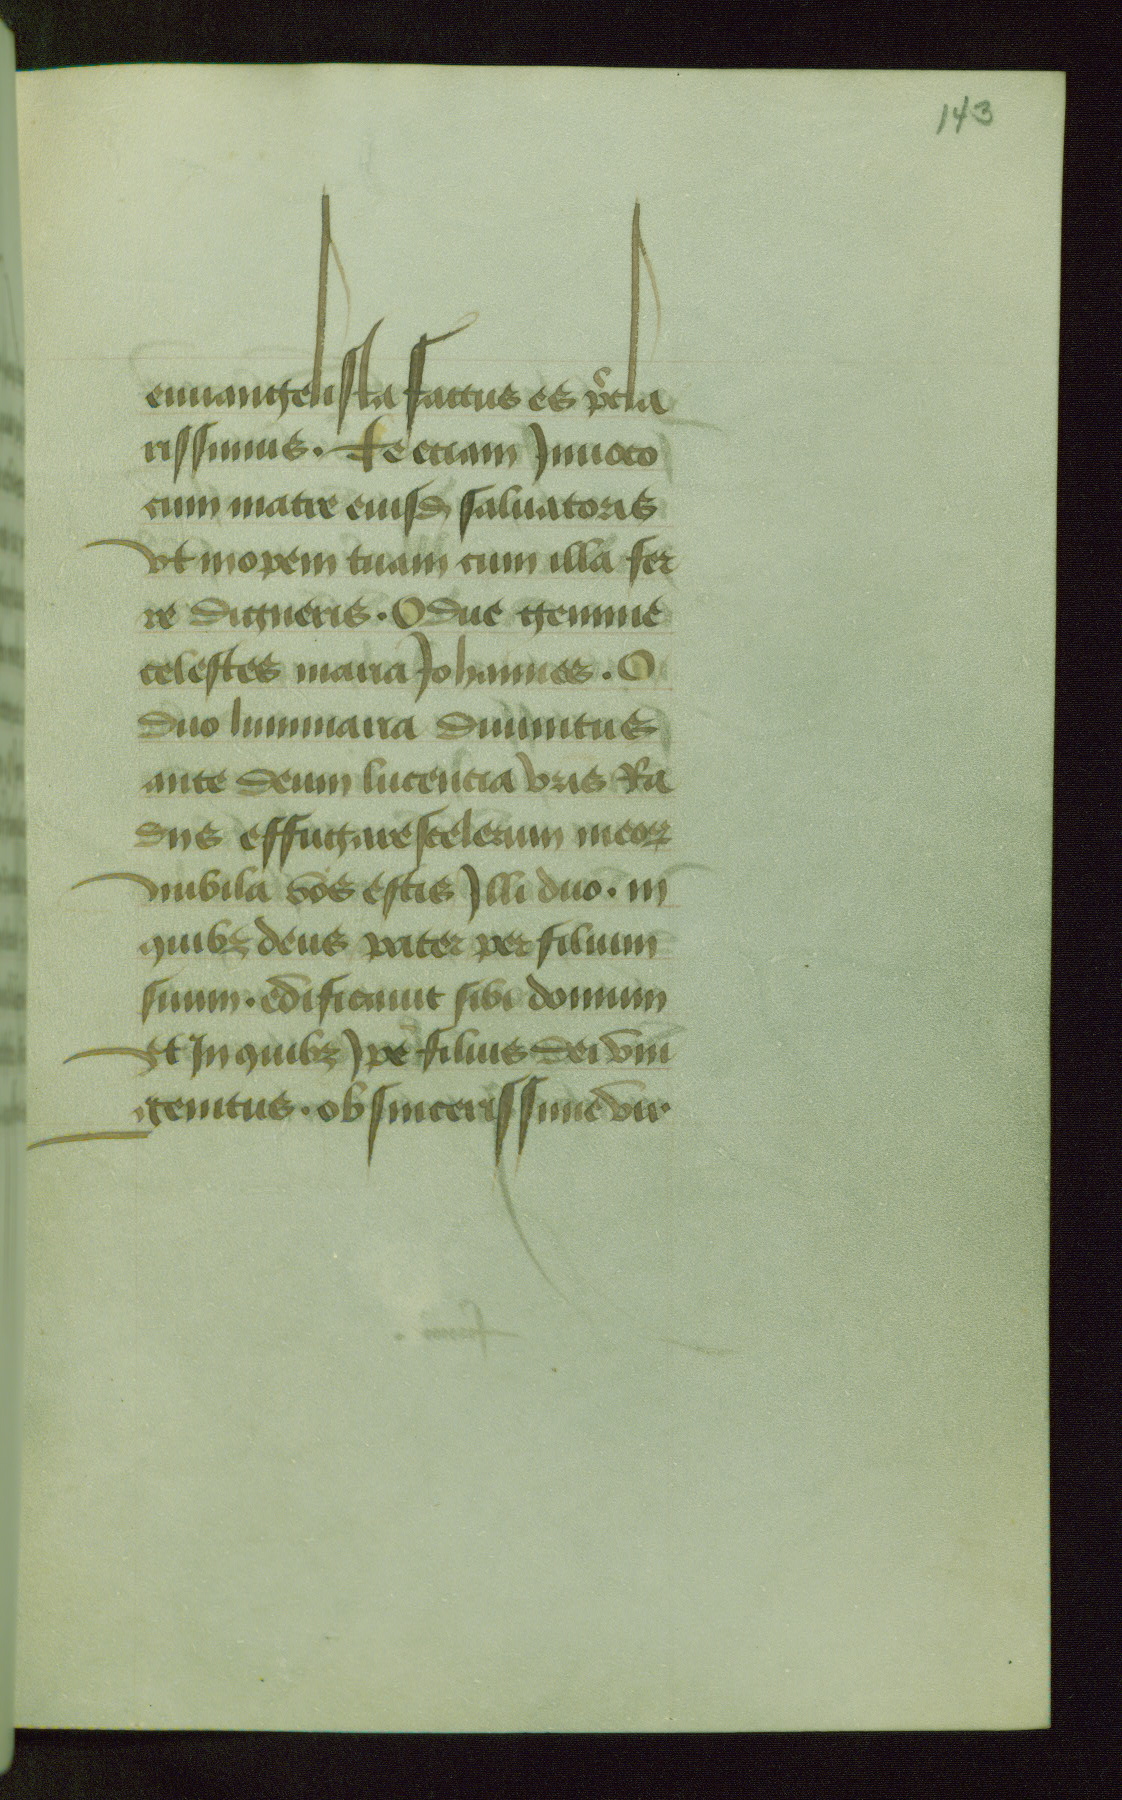 143
euuangelista factus es p̄cla
rissimus. Te etiam Jnuoco
cum matre eiusdē saluatoris
vt mopem tuam cum illa fer
re digneris. O due gemme
celestes maria Johannes. O
duo luminaria diuinitus
ante deum lucentia vr̄is Ra
diis effugare scelerum meoꝝ
nubila vos estis Jlli duo. in
quibꝫ deus pater per filium
suum. edificauit sibi domum
Et Jn quibꝫ Jpe filius dei vni
genitus. ob sincerissime vir